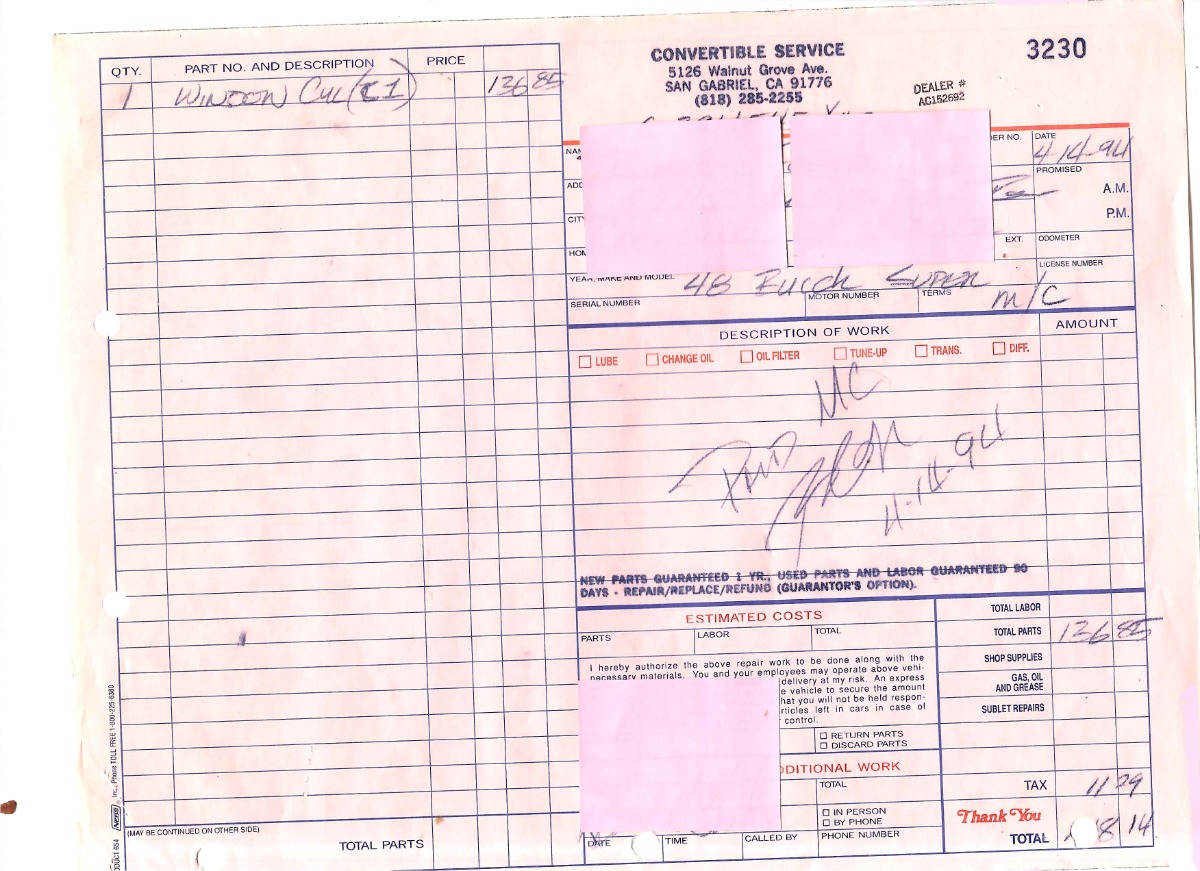 CONVERTIBLE SERVICE
5126 Walnut Grove Ave.
SAN GABRIEL, CA 91776
(818) 285-2255
DEALER #
AC152692
3230
QTY. PART NO. AND DESCRIPTION PRICE
1 WINDOW CYL 136 85
DATE
4-14-94
PROMISED
A.M.
P.M.
EXT. ODOMETER
LICENSE NUMBER
YEAR, MAKE AND MODEL 48 Buick Super
SERIAL NUMBER MOTOR NUMBER TERMS M/C
DESCRIPTION OF WORK AMOUNT
LUBE CHANGE OIL OIL FILTER TUNE-UP TRANS. DIFF.
MC
PAID
4-14-94
NEW PARTS GUARANTEED 1 YR., USED PARTS AND LABOR GUARANTEED 90
DAYS - REPAIR/REPLACE/REFUND (GUARANTOR'S OPTION).
ESTIMATED COSTS
PARTS LABOR TOTAL
I hereby authorize the above repair work to be done along with the
necessary materials. You and your employees may operate above vehi-
delivery at my risk. An express
vehicle to secure the amount
that you will not be held respon-
articles left in cars in case of
control.
RETURN PARTS
DISCARD PARTS
ADDITIONAL WORK
TOTAL
IN PERSON
BY PHONE
DATE TIME CALLED BY PHONE NUMBER
TOTAL LABOR
TOTAL PARTS 136 85
SHOP SUPPLIES
GAS, OIL
AND GREASE
SUBLET REPAIRS
TAX 11 29
Thank You
TOTAL 14
(MAY BE CONTINUED ON OTHER SIDE)
TOTAL PARTS
654 NEBS Inc., Phone TOLL FREE 1-800-225-6380